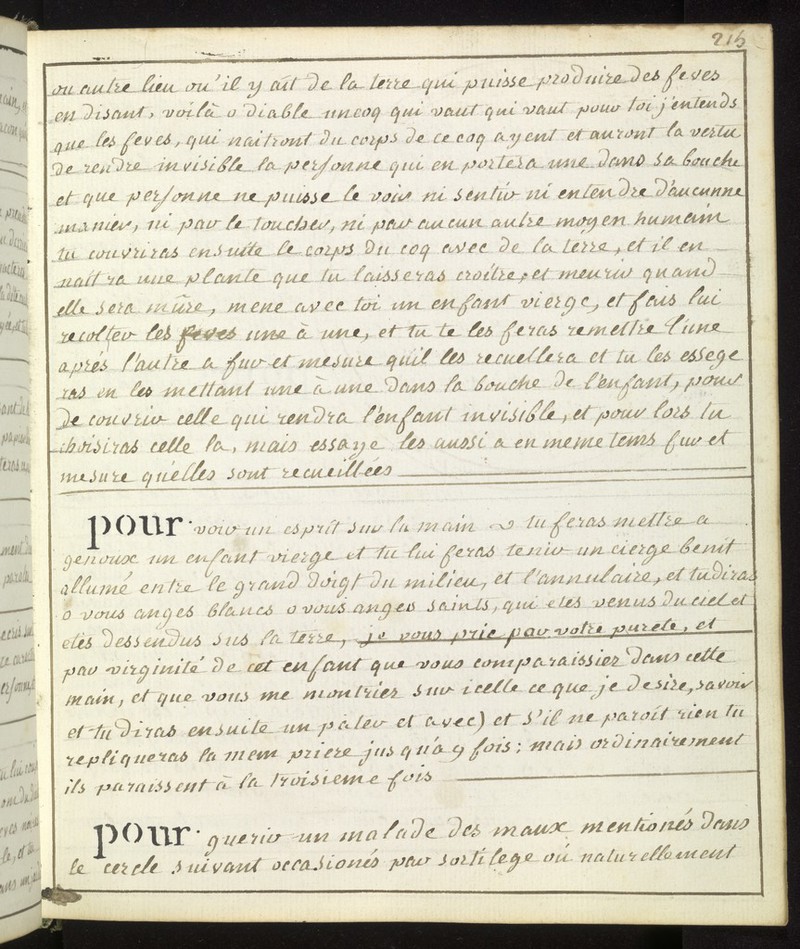 215
ou autre lieu ou'il y ait de la terre qui puisse produire des feves
en disant, voilà o diable un coq qui vaut qui vaut pour toi j'entends
que les feves, qui naitront du corps de ce coq ayent et auront la vertu
de rendre invisible la personne qui en portera une dans sa bouche
et que personne ne puisse le voir ni sentir ni entendre d'aucunne
manier, ni par le toucher, ni par aucun autre moyen humain
tu couvriras ensuite le corps du coq avec de la terre, et il en
naîtra une plante que tu laisseras croître, et meurir quand
elle sera mûre, mene avec toi un enfant vierge, et fais lui
recolter les feves une à une, et tu te les feras remettre l'une
aprés l'autre a fur et mesure quil les recuellera et tu les essege
ras en les mettant une à une dans la bouche de l'enfant, pour
de couvrir celle qui rendra l'enfant invisible, et pour lors tu
choisiras celle la, mais essaye les aussi a en meme tems fur et
mesure quelles sont recueillées
pour voir un esprit sur la main tu feras mettre a
genoux un enfant vierge et tu lui feras tenir un cierge benit
allumé entre le grand doigt du milieu, et l'annulaire, et tu diras
o vous anges blancs o vous anges saints, qui etes venus du ciel et
etes dessendus sus la terre, je vous prie par votre pureté, et
par virginité de cet enfant que vous comparaissiez dans cette
main, et que vous me montriez sur icelle ce que je desire, savoir
et tu diras ensuite un pater et avec) et s'il ne paroît rien tu
repliqueras la mem priere jusqu'a 9 fois: mais ordinairement
ils paraissent à la troisieme fois
pour guerir un malade des maux mentionés dans
le cercle suivant occasionés par sortilege où naturellement